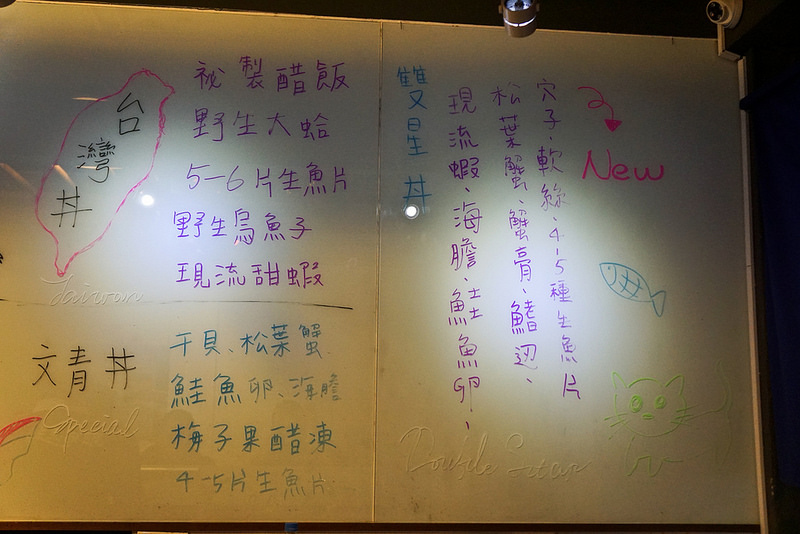 台灣丼
祕製醋飯
野生大蛤
5-6片生魚片
野生烏魚子
現流甜蝦
Taiwan
文青丼
干貝、松葉蟹
鮭魚卵、海膽
梅子果醋凍
4-5片生魚片
Special
雙星丼
穴子、軟絲、4-5種生魚片
松葉蟹、蟹膏、鰭边、
現流蝦、海膽、鮭魚卵、
New
Double Star